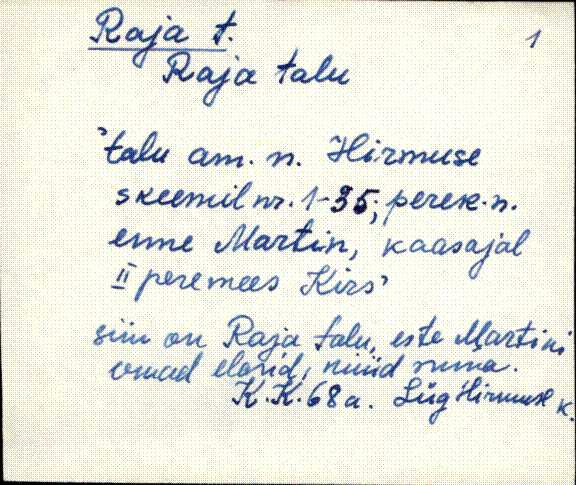 Raja t.
1
Raja talu
'talu am. n. Hirmuse
skeemil nr. 1-35; perek. n.
enne Martin, kaasajal
II peremees Kirs'
siin on Raja talu, este Martini
omad elasid, nüid muna.
K.K. 68 a. Lüg Hirmuse k.